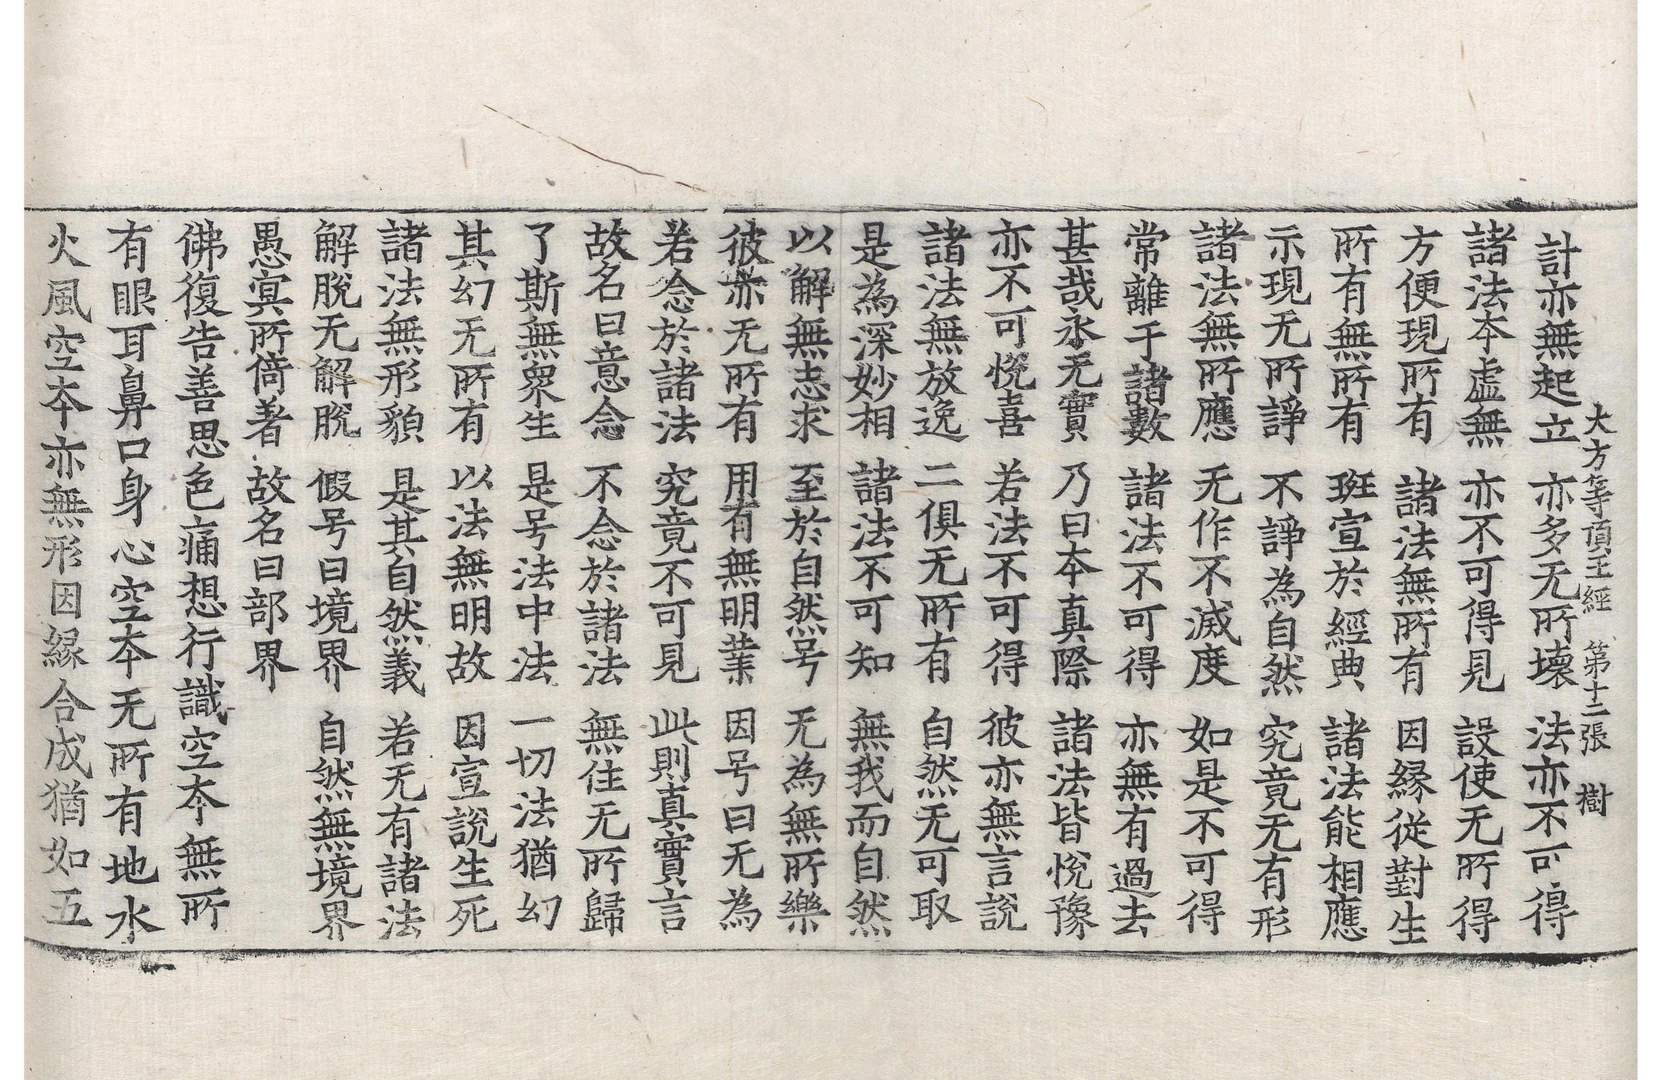 大方等頂王經　第十二張　樹
計亦無起立　亦多无所壞　法亦不可得
諸法本虛無　亦不可得見　設使无所得
方便現所有　諸法無所有　因緣從對生
所有無所有　班宣於經典　諸法能相應
示現无所諍　不諍為自然　究竟无有形
諸法無所應　无作不滅度　如是不可得
常離于諸數　諸法不可得　亦無有過去
甚哉永无實　乃曰本真際　諸法皆悅豫
亦不可悅喜　若法不可得　彼亦無言說
諸法無放逸　二俱无所有　自然无可取
是為深妙相　諸法不可知　無我而自然
以解無志求　至於自然号　无為無所樂
彼亦无所有　用有無明業　因号曰无為
若念於諸法　究竟不可見　此則真實言
故名曰意念　不念於諸法　無住无所歸
了斯無眾生　是号法中法　一切法猶幻
其幻无所有　以法無明故　因宣說生死
諸法無形貌　是其自然義　若无有諸法
解脫无解脫　假号曰境界　自然無境界
愚冥所倚著　故名曰部界
佛復告善思色痛想行識空本無所
有眼耳鼻口身心空本无所有地水
火風空本亦無形因緣合成猶如五